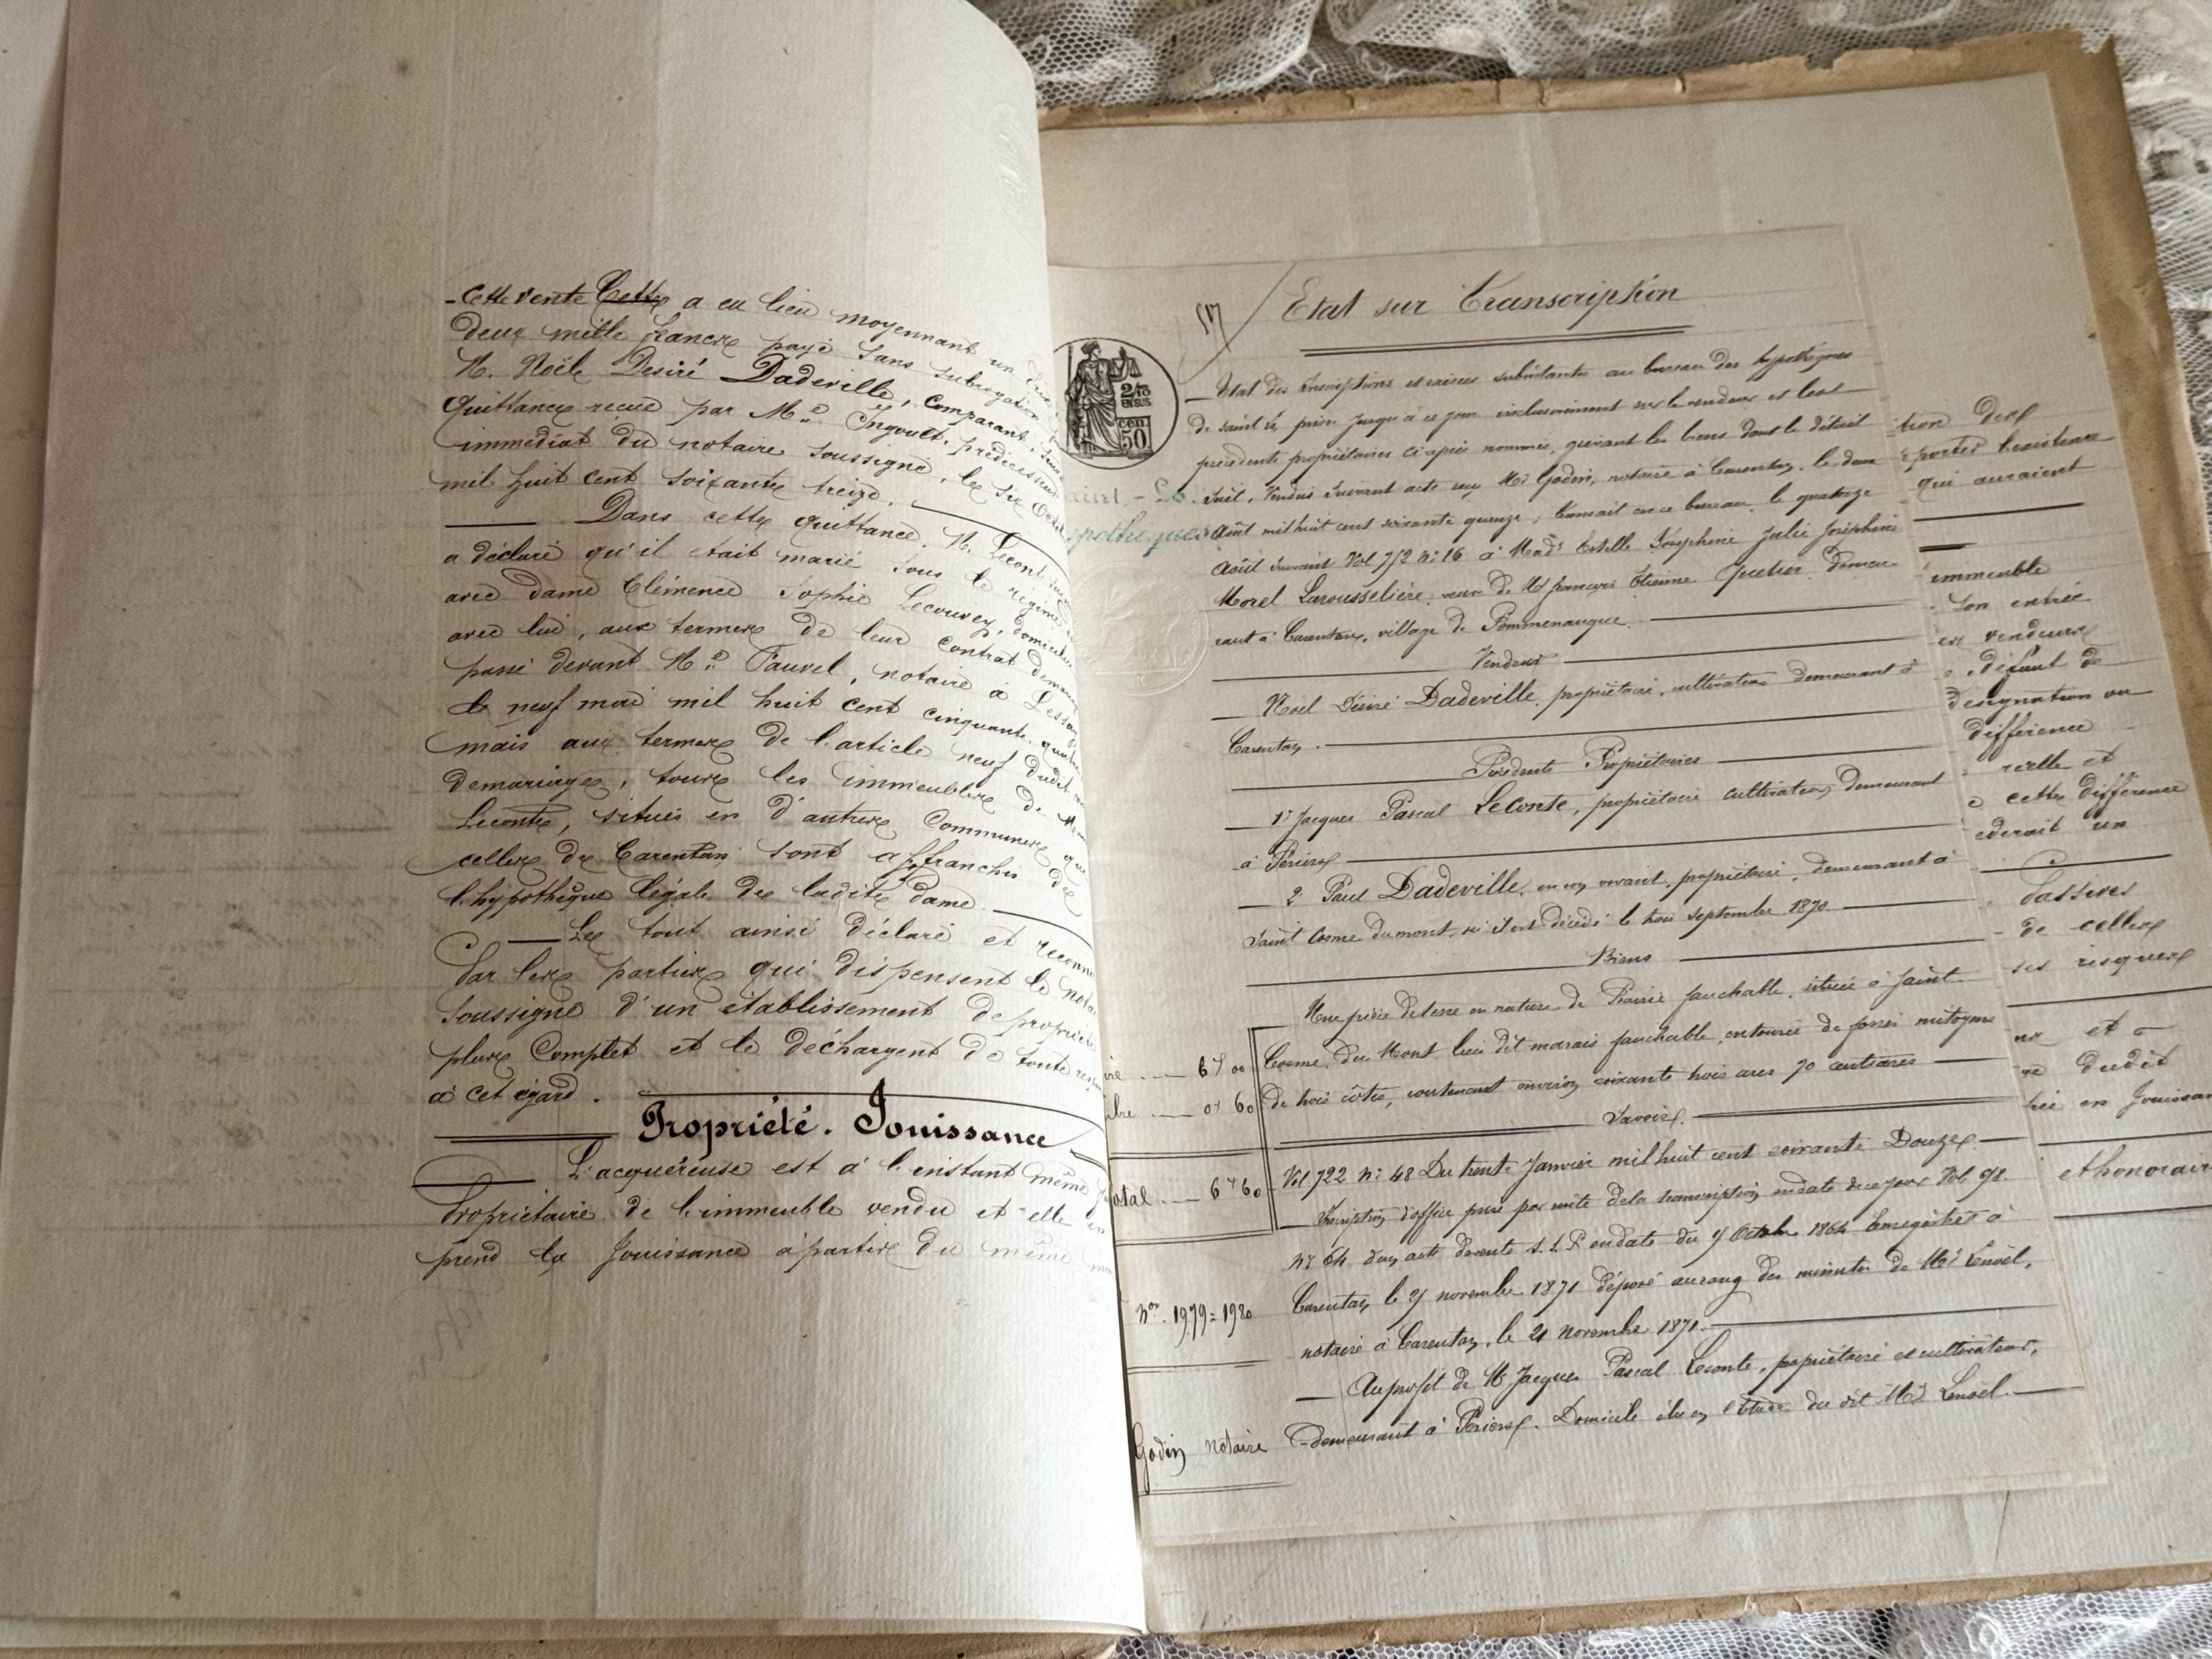 Cette vente Cette a eu lieu moyennant un
deux mille francs payé sans subrogation
M. Noël Desiré Dadeville, comparant,
Quittance recue par Me. Ingoult, prédécesseur
immédiat du notaire soussigné, le six Octob
mil huit cent soixante treize.
Dans cette quittance, M. Leconte
a déclaré qu'il était marié sous le régime
avec dame Clémence Sophie Lecouvey, domiciliée
avec lui, aux termes de leur contrat
passé devant Me. Fauvel, notaire à Lessay
le neuf mai mil huit cent cinquante quatre
mais aux termes de l'article neuf dudit
demariage, tous les immeubles de
Leconte, situés en d'autres Communes que
celles de Carentan sont affranchis de
l'hypothèque légale de ladite dame.
Le tout ainsi déclaré et reconn
Par les parties qui dispensent le nota
soussigné d'un établissement de propriété
plus Complet et le déchargent de toute
à cet égard.
Propriété. Jouissance
L'acquéreuse est à l'instant même
Propriétaire de l'immeuble vendu et elle en
prend la Jouissance à partir du même
Etat sur Transcription
2/10
EN SUS
50
cen
Etat des Inscriptions et saisies subsistantes au bureau des hypothèques
de saint Lo, prises jusqu'à ce jour inclusivement sur le vendeur et les
précédents propriétaires ci après nommés, grevant les biens dont le détail
suit, Vendus suivant acte reçu Me Godin, notaire à Carentan, le deux
Août mil huit cent soixante quinze, transcrit en ce bureau le quatorze
Août suivant Vol 772 No 16 à Made Estelle Joséphine Julie Joséphine
Morel Larousselière, veuve de M François Etienne demeu
rant à Carentan, village de Pommenauque.
Saint-Lo.
pothèques
Vendeur
Noël Désiré Dadeville, propriétaire, cultivateur demeurant à
Carentan.
Précédents Propriétaires
1º Jacques Pascal Leconte, propriétaire cultivateur, demeurant
à Périers
2. Paul Dadeville, en son vivant, propriétaire, demeurant à
Saint Cosme du mont, où il est décédé le trois septembre 1870
Biens
Une pièce de terre en nature de Prairie fauchable, située à Saint
Cosme du Mont, lieu dit marais fauchable, entourée de fossés mitoyens
de trois côtés, contenant environ soixante trois ares 70 centiares
Savoir.
Vol 722 No 48 Du trente Janvier mil huit cent soixante Douze
Inscription d'office prise par suite de la transcription en date de ce jour Vol 98.
No 64 d'un acte de vente S.S.P en date du 9 Octobre 1864 Enregistré à
Carentan le 21 novembre 1871 déposé au rang des minutes de Me Lenoël,
notaire à Carentan, le 21 Novembre 1871.
Au profit de M Jacques Pascal Leconte, propriétaire et cultivateur,
demeurant à Périers. Domicile élu en l'étude du dit Me Lenoël.
6f 00
0f 60
otal 6f 60
Nos. 1979=1980
Godin notaire
tion des
porter l'existence
qui auraient
immeuble
son entrée
es vendeurs
défaut de
désignation ou
différence
réelle et
cette différence
éderait un
Passives
de celles
ses risques
et
dudit
en Jouissan
et honorair